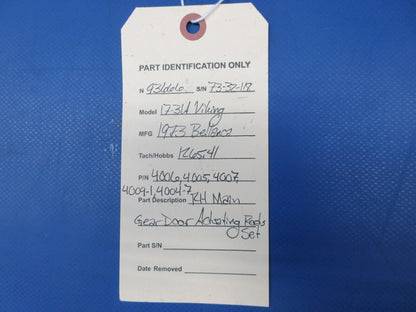 PART IDENTIFICATION ONLY
N 9316606 S/N 73-32-117
Model 17-31A Viking
MFG 1973 Bellanca
Tach/Hobbs 1265.41
P/N 4006, 4005, 4007,
4009-1, 4004-7
Part Description RH Main
Gear Door Actuating Rods
Set
Part S/N
Date Removed